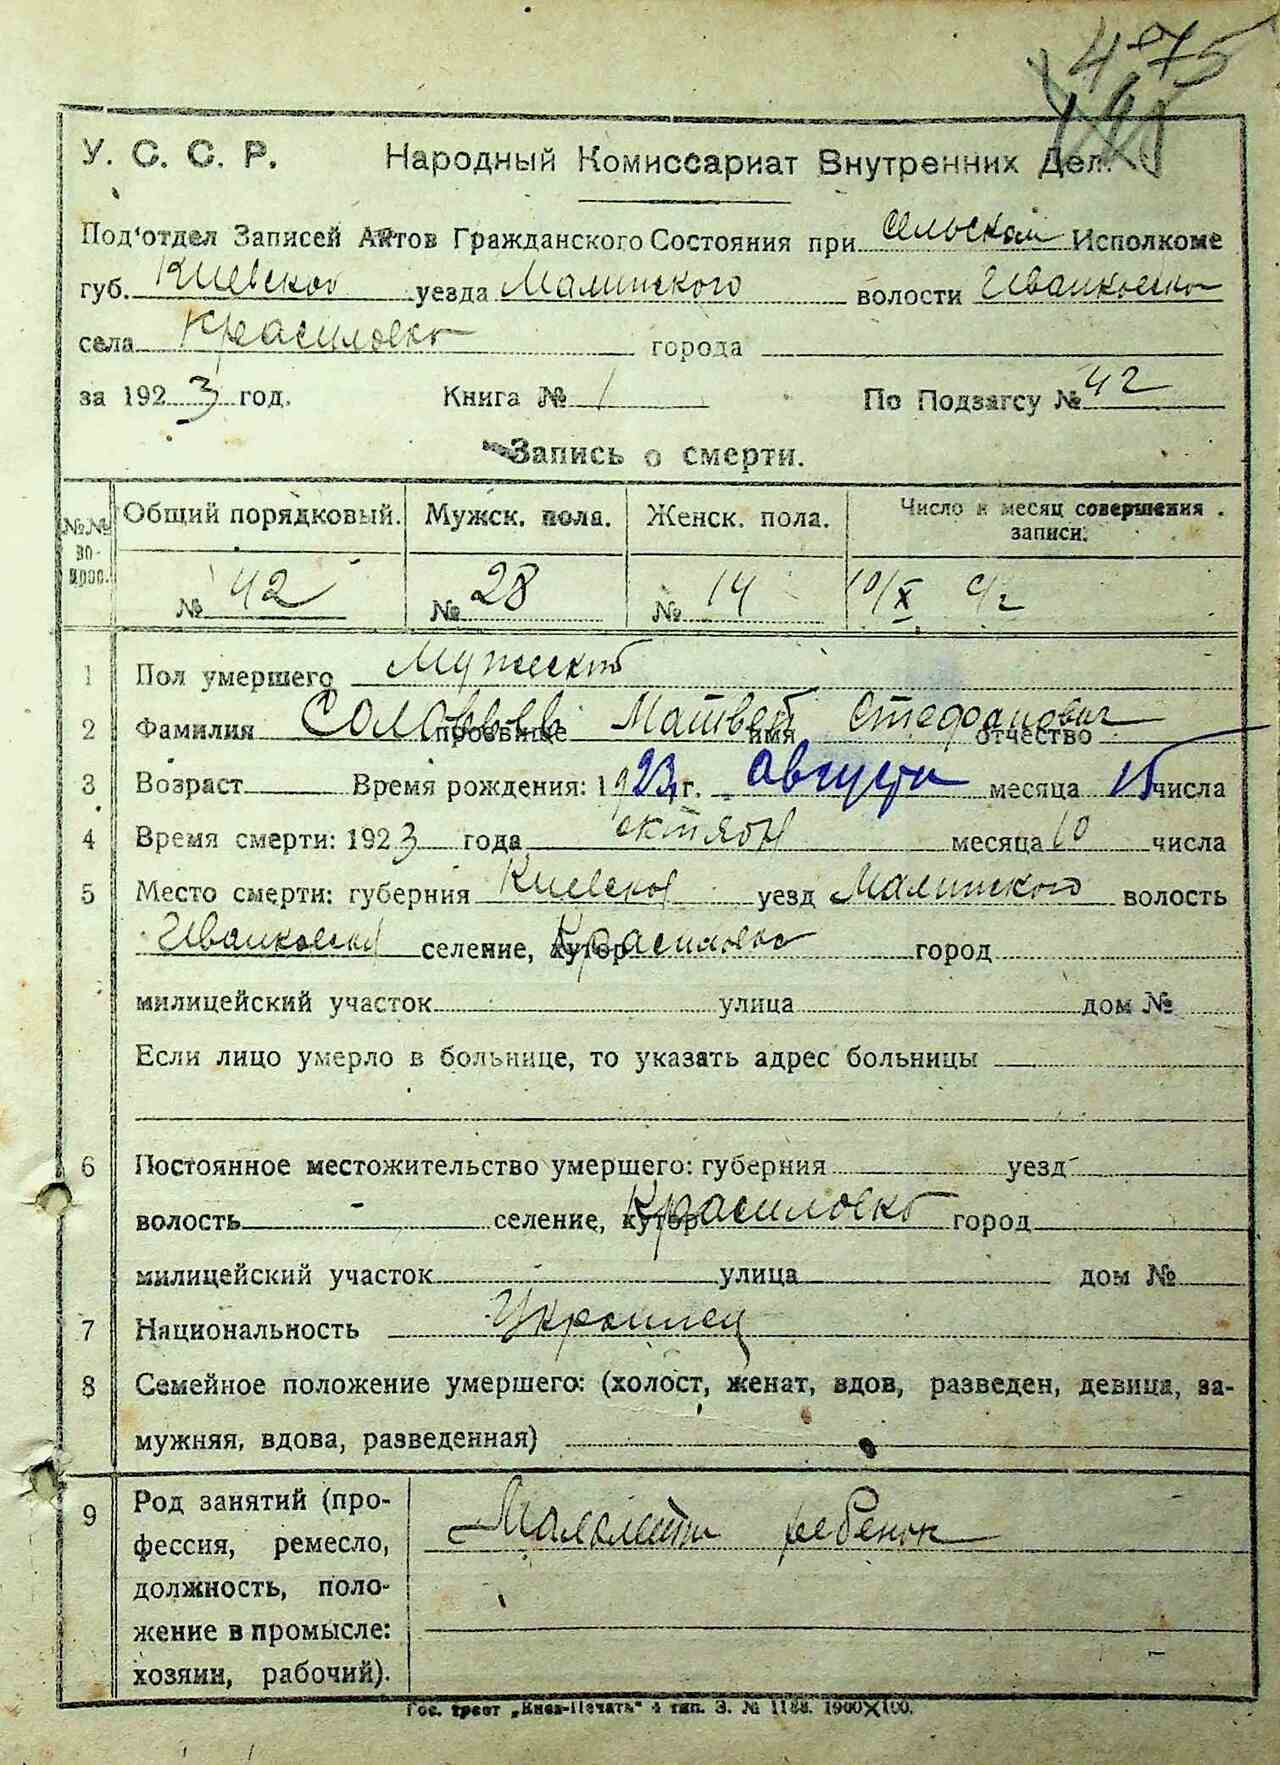 475
У. С. С. Р. Народный Комиссариат Внутренних Дел.
Под'отдел Записей Актов Гражданского Состояния при сельском Исполкоме
губ. Киевской уезда Малинского волости Иванковско
села Красиловко города
за 1923 год. Книга № 1 По Подзагсу № 42
Запись о смерти.
№№ вопрос. Общий порядковый. Мужск. пола. Женск. пола. Число и месяц совершения записи.
№ 42 № 28 № 14 10/X с/г
1 Пол умершего Мужской
2 Фамилия Соловьев прозвище Матвей имя Стефанович отчество
3 Возраст Время рождения: 1923 г. августа месяца 15 числа
4 Время смерти: 1923 года октябр месяца 10 числа
5 Место смерти: губерния Киевской уезд Малинского волость
Иванковской селение, хутор Красиловко город
милицейский участок улица дом №
Если лицо умерло в больнице, то указать адрес больницы
6 Постоянное местожительство умершего: губерния уезд
волость - селение, хутор Красиловко город
милицейский участок улица дом №
7 Национальность Украинец
8 Семейное положение умершего: (холост, женат, вдов, разведен, девица, за-
мужняя, вдова, разведенная)
9 Род занятий (про-
фессия, ремесло, Малолетн ребенок
должность, поло-
жение в промысле:
хозяин, рабочий).
Гос. трест „Киев-Печать" 4 тип. З. № 1188. 1900X100.